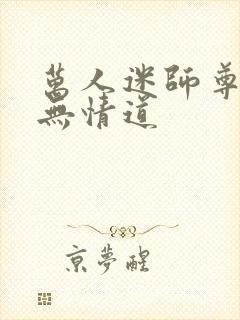 萬人迷師尊
無情道
京夢醒